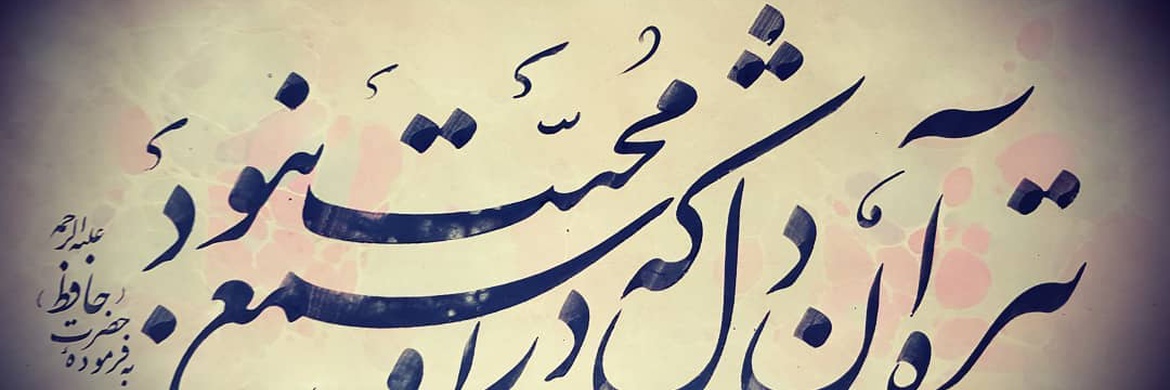 تیره آن دل که در او شمع محبّت نبود
به فرمودهٔ
حضرت
(حافظ)
علیه الرحمه